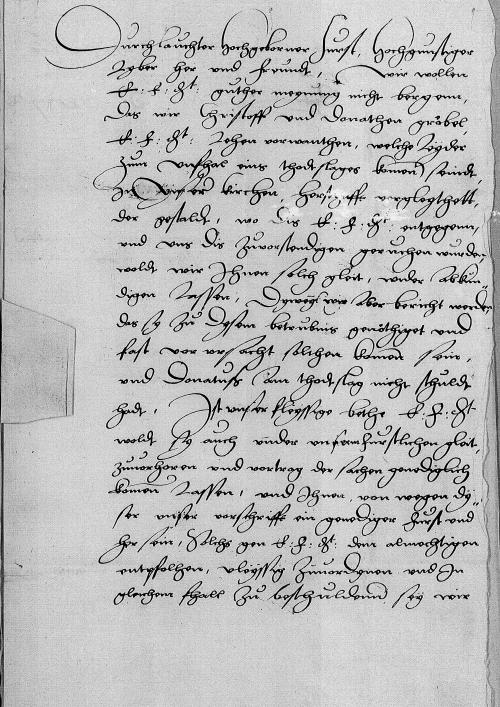 Durchlauchter Hochgeborner Furst, Hochgunstiger
Lyber her und freundt, Wir wollen
E: F: G: guther meynung nicht bergenn,
Das wir Christoff und Donathen gröbel,
E: F: G: Lehen vorwanthen, welche Leyder
zum unfhal eins thodtslages komen seindt,
In unser kirchen, herschafft vergleythett,
der gestaldt, wo dis E: F: G: entgegenn,
und uns dis zuvorstendigen geruchen wurden
woldt wir Ihnen solch gleit, wider abkun-
digen lassen, Dyweyl wir aber bericht werden
das sy zu dysem betrubnis genöthiget und
fast vor ursacht solchen komen sein,
und Donatuss am thodtslag nicht schuldt
hadt, Ist unser fleyssige bethe E: F: G:
woldt sy auch under unserm furstlichen gleit,
zuvorhoren und vortrag der sachen genediglich
komen lassen, und Ihnen, von wegen dy-
ser unser vorschrifft ein genediger Furst und
her sein, Solchs gen E: F: G: dem almechtigen
entpfolhen, vleyssig zuvordynen und In
gleichem fhall zu beschuldenn sey wir